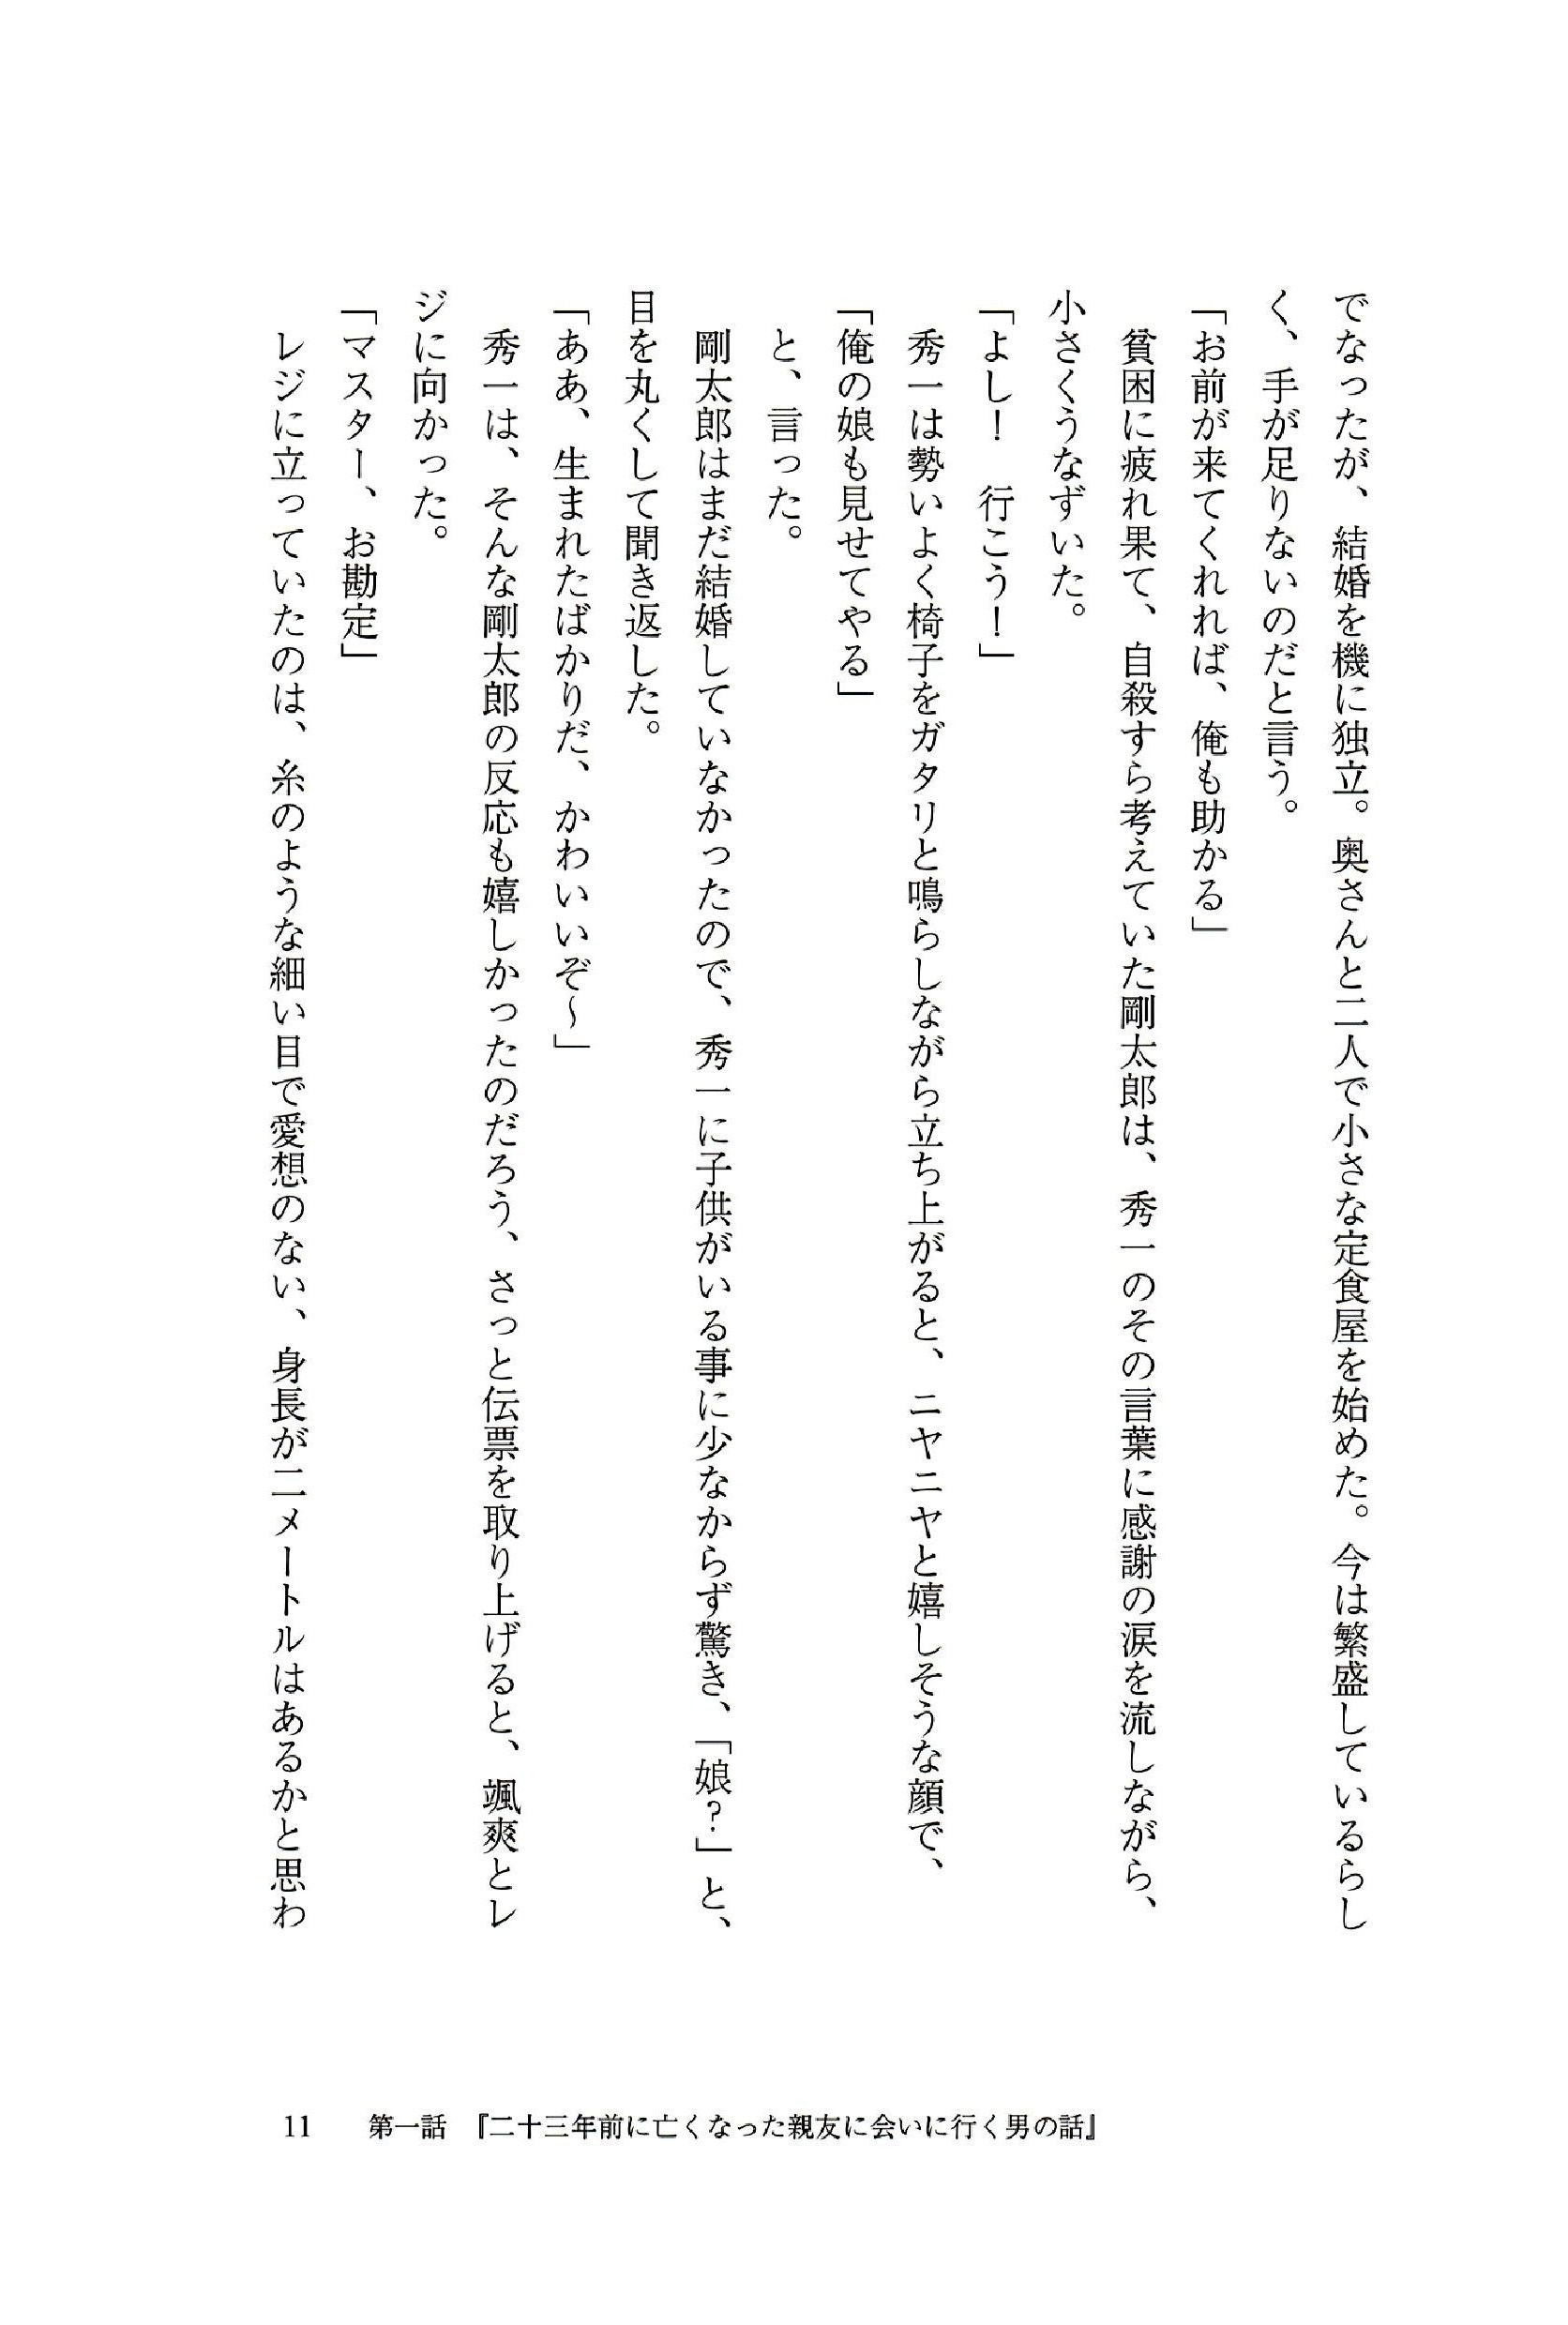 でなったが、結婚を機に独立。奥さんと二人で小さな定食屋を始めた。今は繁盛しているらし
く、手が足りないのだと言う。
「お前が来てくれれば、俺も助かる」
　貧困に疲れ果て、自殺すら考えていた剛太郎は、秀一のその言葉に感謝の涙を流しながら、
小さくうなずいた。
「よし！　行こう！」
　秀一は勢いよく椅子をガタリと鳴らしながら立ち上がると、ニヤニヤと嬉しそうな顔で、
「俺の娘も見せてやる」
　と、言った。
　剛太郎はまだ結婚していなかったので、秀一に子供がいる事に少なからず驚き、「娘？」と、
目を丸くして聞き返した。
「ああ、生まれたばかりだ、かわいいぞ〜」
　秀一は、そんな剛太郎の反応も嬉しかったのだろう、さっと伝票を取り上げると、颯爽とレ
ジに向かった。
「マスター、お勘定」
　レジに立っていたのは、糸のような細い目で愛想のない、身長が二メートルはあるかと思わ
11　第一話　『二十三年前に亡くなった親友に会いに行く男の話』